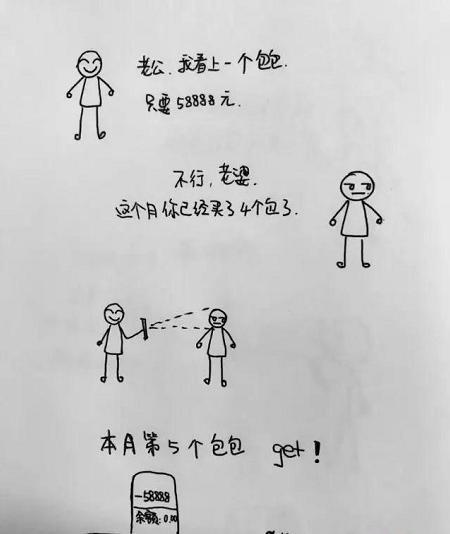 老公，我看上一个包包.
只要 58888 元.
不行，老婆.
这个月你已经买了4个包了.
本月第5个包包 get！
-58888
余额：0.00